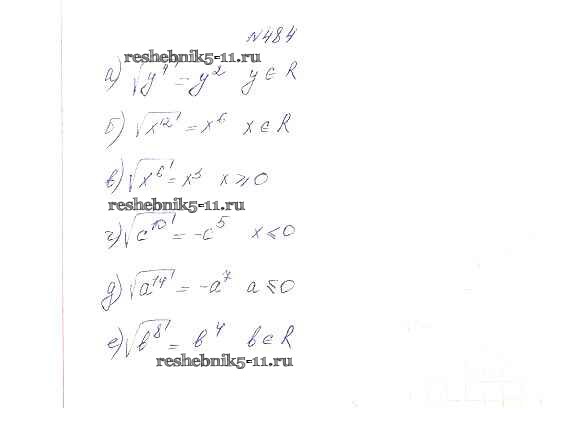 №484
reshebnik5-11.ru
а) √y⁴ = y² y ∈ R
б) √x¹² = x⁶ x ∈ R
в) √x⁶ = x³ x ⩾ 0
reshebnik5-11.ru
г) √c¹⁰ = -c⁵ x ⩽ 0
д) √a¹⁴ = -a⁷ a ⩽ 0
е) √b⁸ = b⁴ b ∈ R
reshebnik5-11.ru